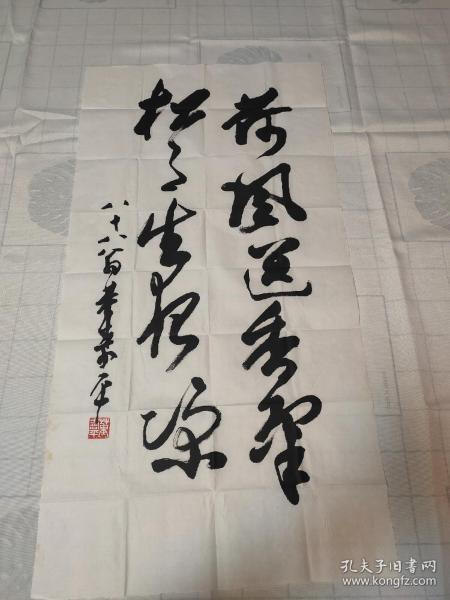 荷風送香氣
松月生夜凉
八十八翁
孔夫子旧书网
www.kongfz.com